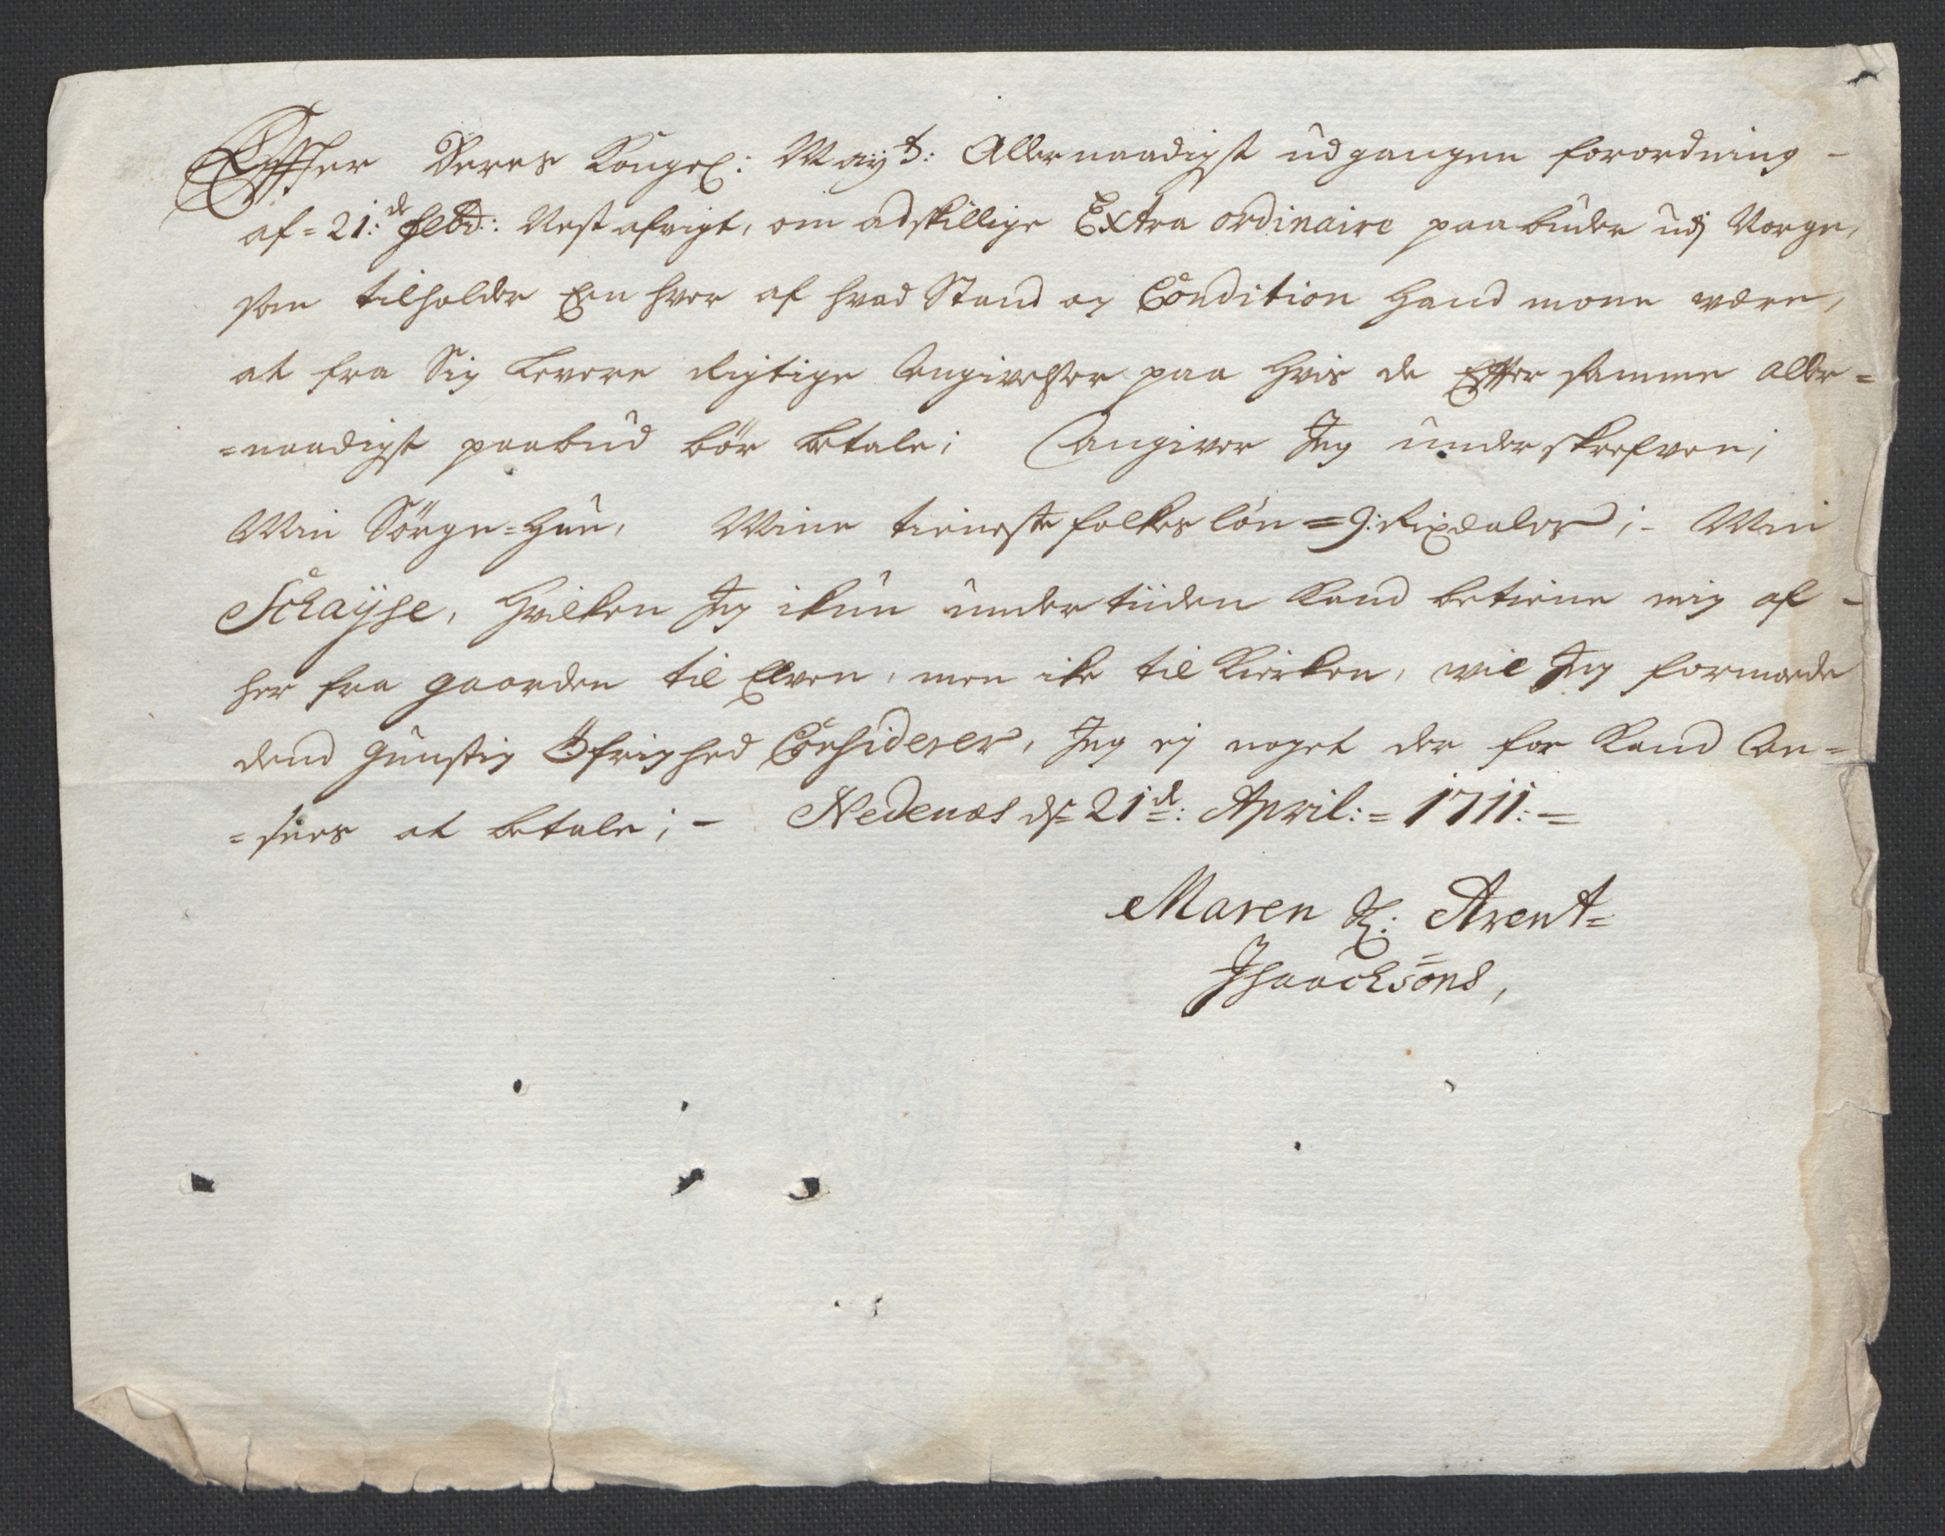 Effter Deres Kongel: May:ts: Allernaadigst udgangen forordning -
af = 21:de Feb: Nest afvigt, om adskillige Extra ordinaire paabuder udj Norge,
som tilholder Een hver af hvad Stand og Condition Hand mone være,
at fra Sig Levere Rigtige Angivelser paa hvis de Effter samme aller=
=naadigst paabud bør betale; Angiver Jeg underskrefven;
Min Sörge=Hue, Mine tienestefolkes lön = 9: Rixdaler; - Min
Schayse, hvilken Jeg ikun undertiiden Kand betiene mig af -
her fra gaarden til Elven, men ike til Kirken, vil Jeg formode
dend gunstig Öfrighed Considerer, Jeg ej noget der for Kand An=
=sees at betale; - Nedenæs ds 21:de: April: = 1711: =
Maren Sl: Arent=
Isaacksöns,